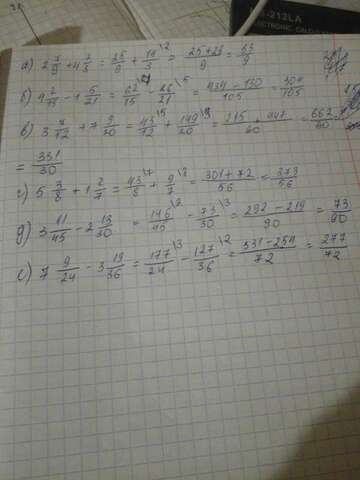 -212LA
ECTRONIC CALC
а) 2 7/9 + 4 2/3 = 25/9 + 14/3 \2 = 25+28/9 = 53/9
б) 4 2/15 - 1 5/21 = 62/15 \7 - 26/21 \5 = 434-130/105 = 304/105
в) 3 7/12 + 7 9/20 = 43/12 \5 + 149/20 \3 = 215+447/60 = 662/60
= 331/30
г) 5 3/8 + 1 2/7 = 43/8 \7 + 9/7 \8 = 301+72/56 = 373/56
д) 3 11/45 - 2 13/30 = 146/45 \2 - 73/30 \3 = 292-219/90 = 73/90
е) 7 9/24 - 3 19/36 = 177/24 \3 - 127/36 \2 = 531-254/72 = 277/72